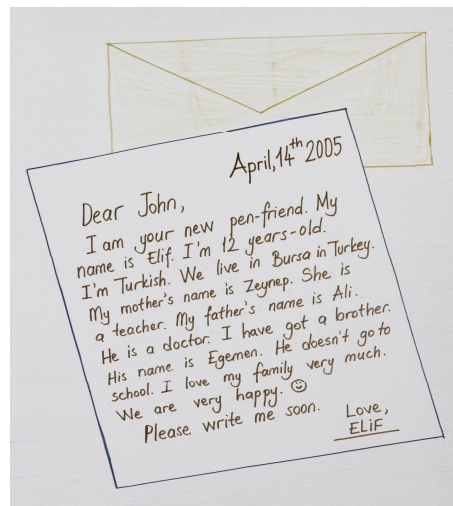 April, 14th 2005
Dear John,
I am your new pen-friend. My
name is Elif. I'm 12 years-old.
I'm Turkish. We live in Bursa in Turkey.
My mother's name is Zeynep. She is
a teacher. My father's name is Ali.
He is a doctor. I have got a brother.
His name is Egemen. He doesn't go to
school. I love my family very much.
We are very happy. ☺
Please write me soon.
Love,
ELiF